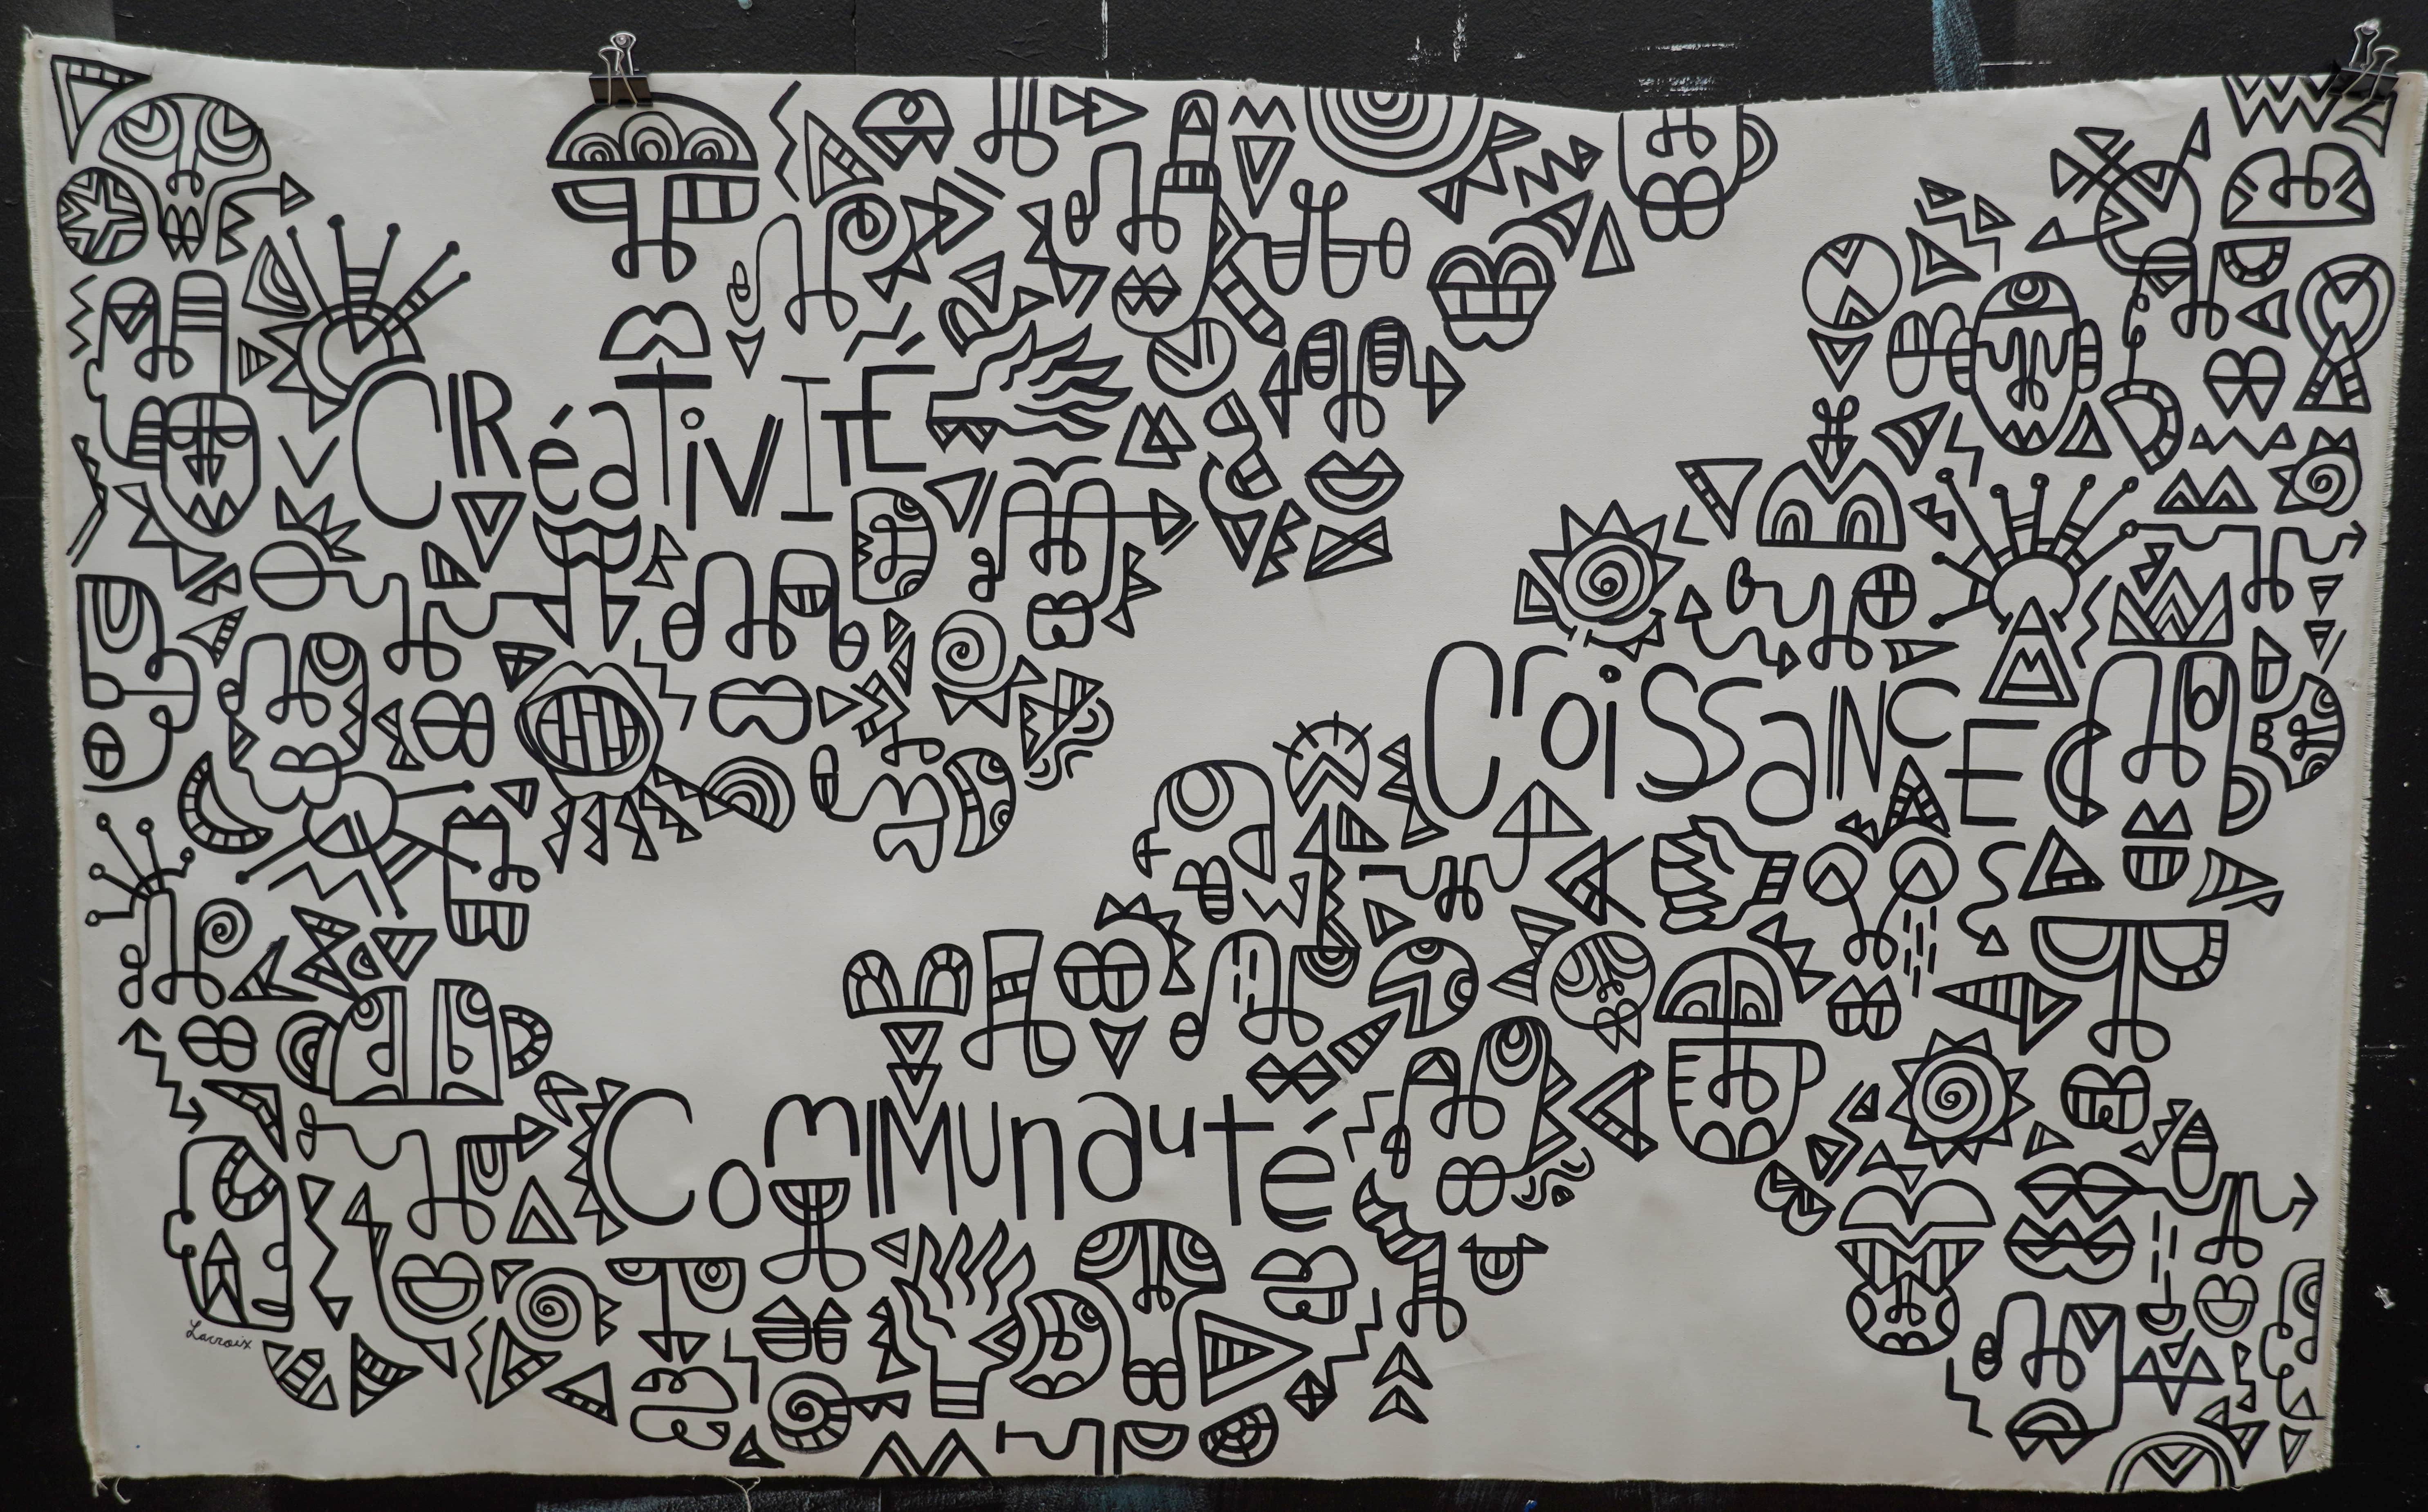 CRéaTiViTÉ
CroissaNCE
CoMMunauté
Lacroix